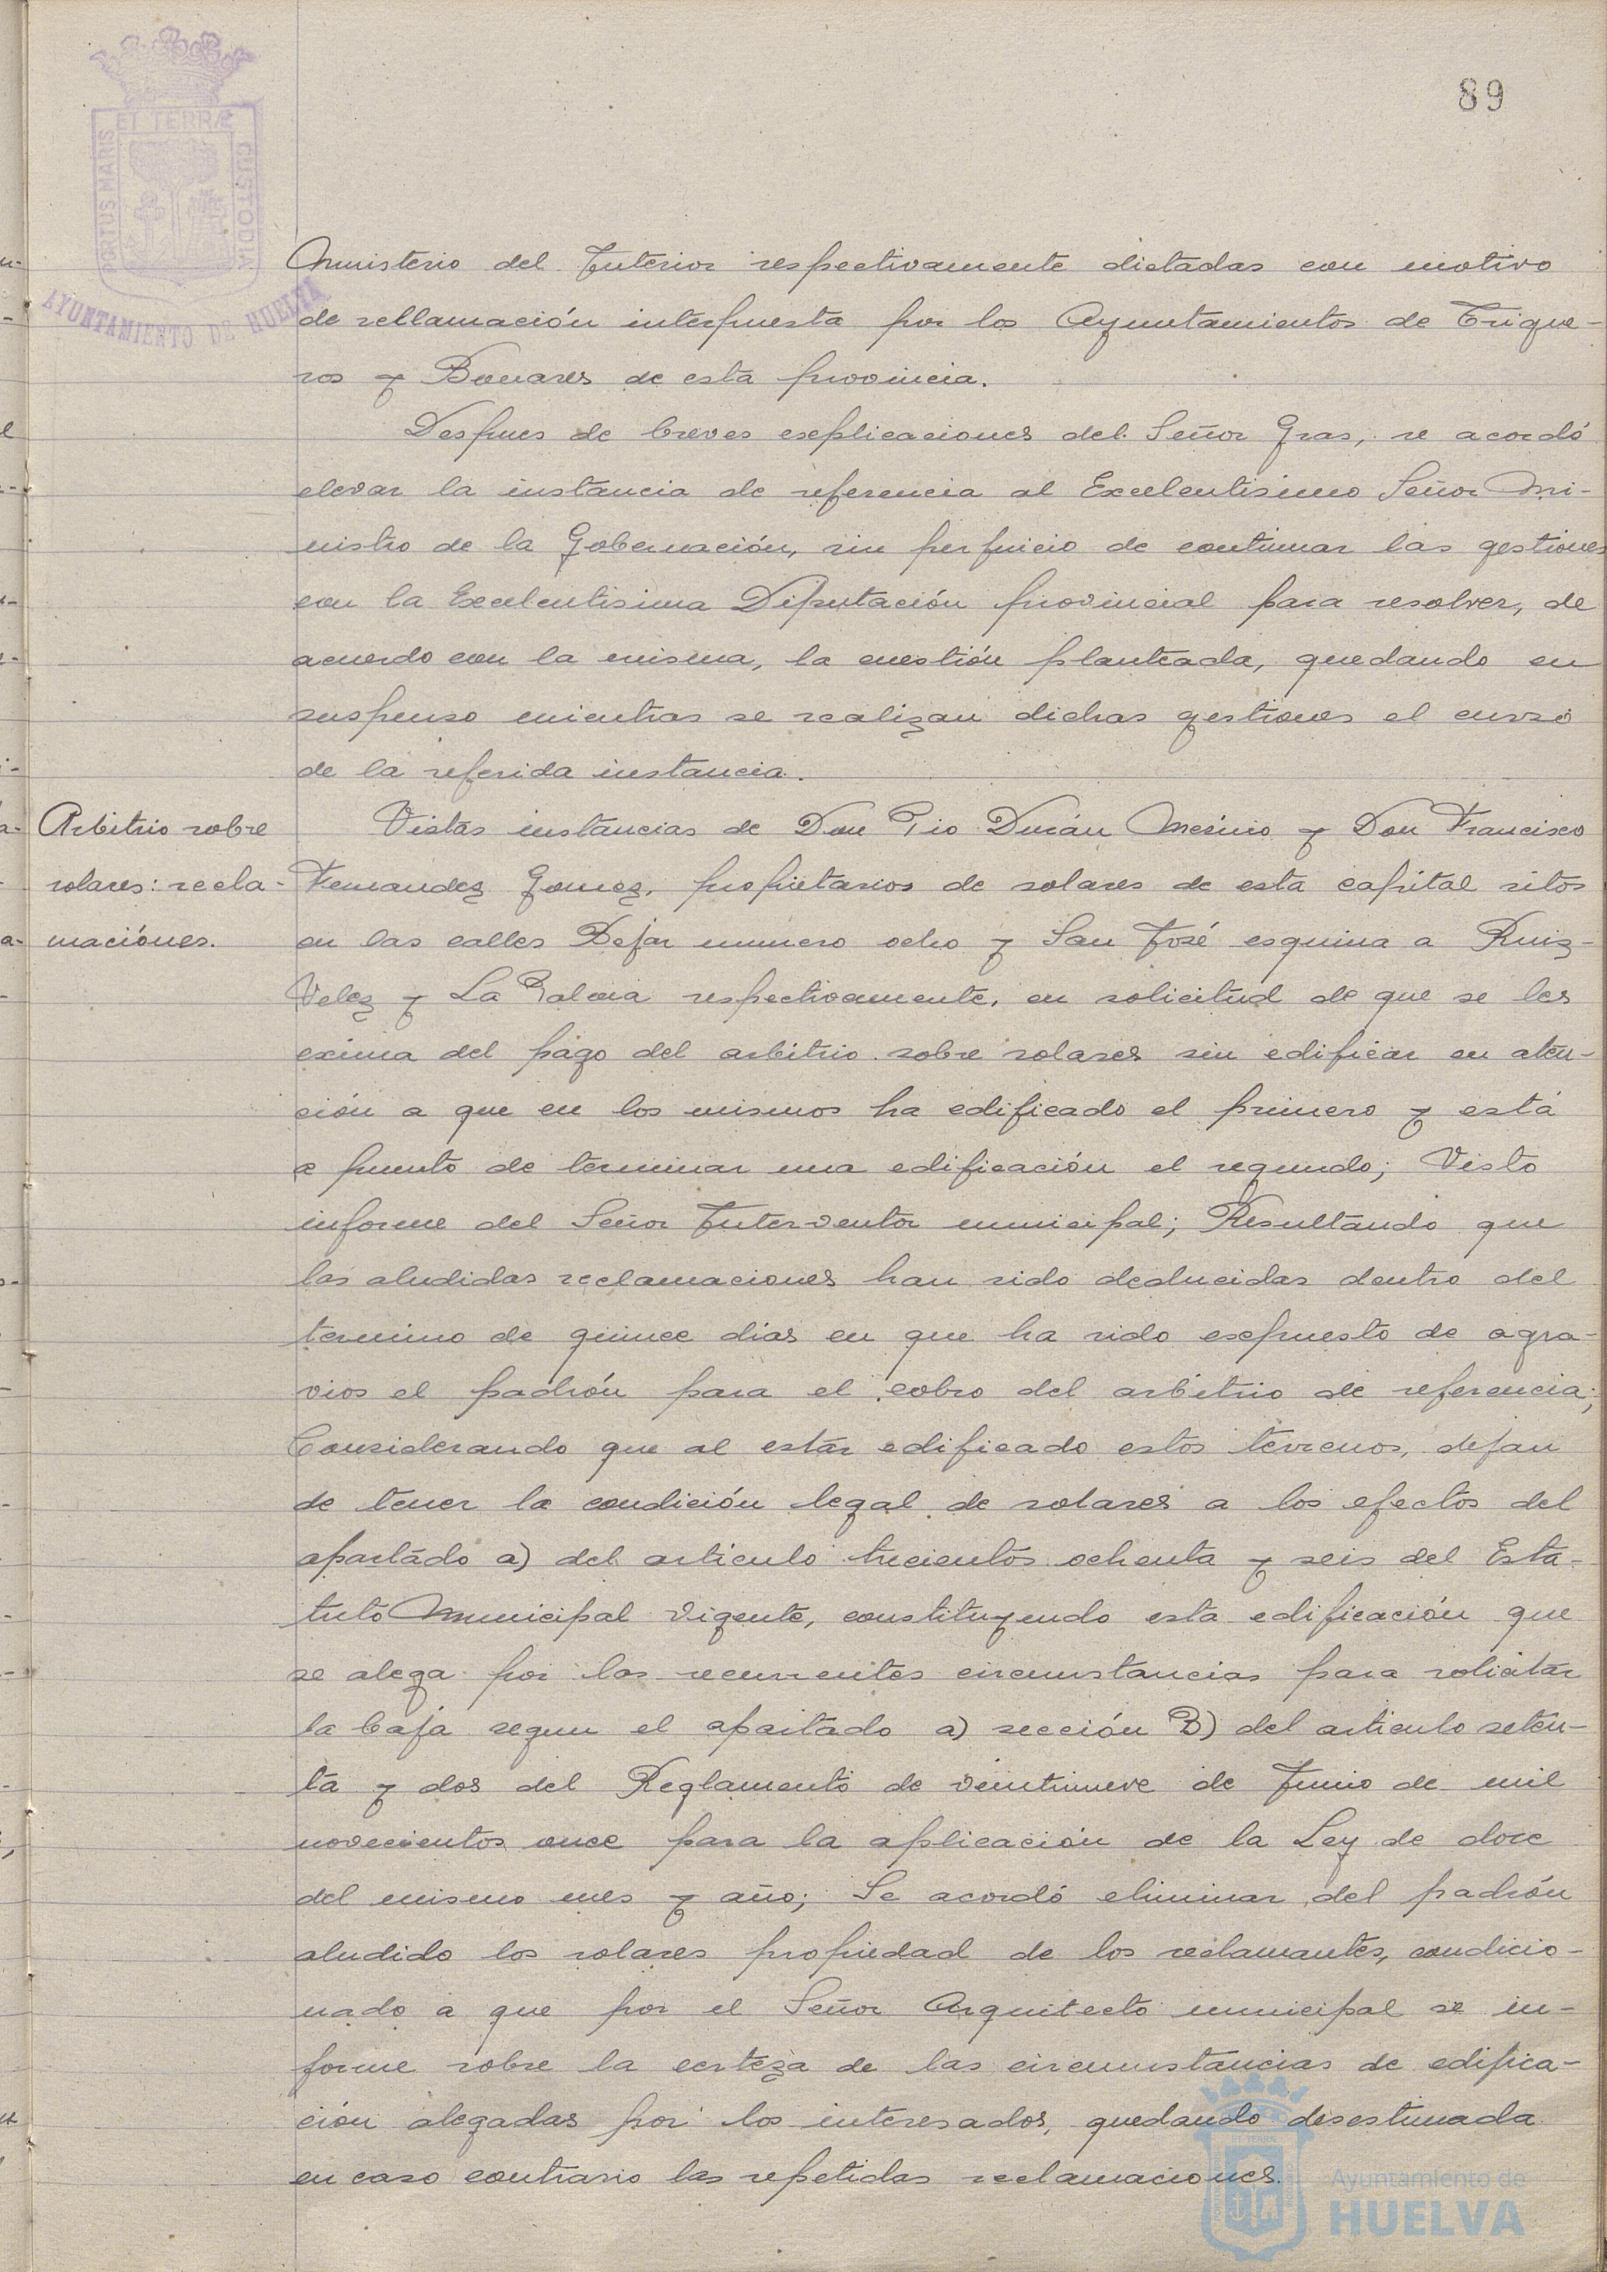 89
ET TERRÆ
PORTUS MARIS
CUSTODIA
AYUNTAMIENTO DE HUELVA
Ministerio del Interior respectivamente dictadas con motivo
de reclamación interpuesta por los Ayuntamientos de Trigue-
ros y Bonares de esta provincia.
Despues de breves explicaciones del Señor Gras, se acordó
elevar la instancia de referencia al Excelentisimo Señor Mi-
nistro de la Gobernación, sin perjuicio de continuar las gestiones
con la Excelentisima Diputación provincial para resolver, de
acuerdo con la misma, la cuestión planteada, quedando en
suspenso mientras se realizan dichas gestiones el curso
de la referida instancia.
Arbitrio sobre
solares: recla-
maciónes.
Vistas instancias de Don Pio Durán y Don Francisco
Fernandez Gomez, propietarios de solares de esta capital sitos
en las calles Bejar numero ocho y San José esquina a Ruiz-
Velez y La respectivamente, en solicitud de que se les
exima del pago del arbitrio sobre solares sin edificar en aten-
ción a que en los mismos ha edificado el primero y está
a punto de terminar una edificación el segundo; Visto
informe del Señor Interventor municipal; Resultando que
las aludidas reclamaciones han sido deducidas dentro del
termino de quince dias en que ha sido expuesto de agra-
vios el padrón para el cobro del arbitrio de referencia;
Considerando que al estar edificado estos terrenos, dejan
de tener la condición legal de solares a los efectos del
apartado a) del articulo trecientos ochenta y seis del Esta-
tuto Municipal vigente, constituyendo esta edificación que
se alega por los recurrentes circunstancias para solicitar
la baja segun el apartado a) sección B) del articulo seten-
ta y dos del Reglamento de veintinueve de Junio de mil
novecientos once para la aplicación de la Ley de doce
del mismo mes y año; Se acordó eliminar del padrón
aludido los solares propiedad de los reclamantes, condicio-
nado a que por el Señor Arquitecto municipal se in-
forme sobre la certeza de las circunstancias de edifica-
ción alegadas por los interesados, quedando desestimada
en caso contrario las repetidas reclamaciones.
Ayuntamiento de
HUELVA